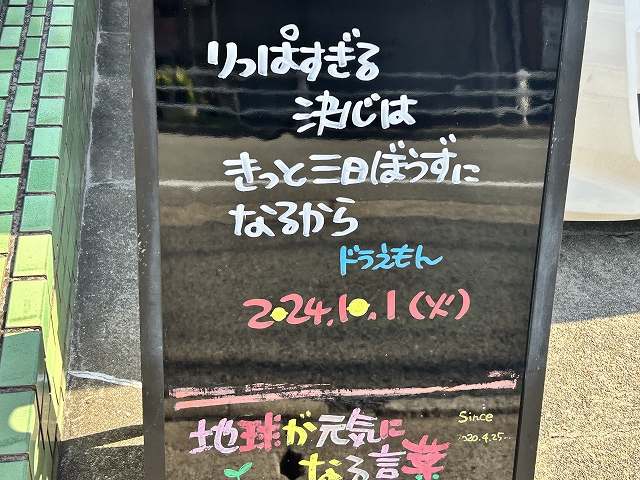 りっぱすぎる
決心は
きっと三日ぼうずに
なるから
ドラえもん
2024.10.1(火)
地球が元気に
なる言葉
Since
2020.4.25~